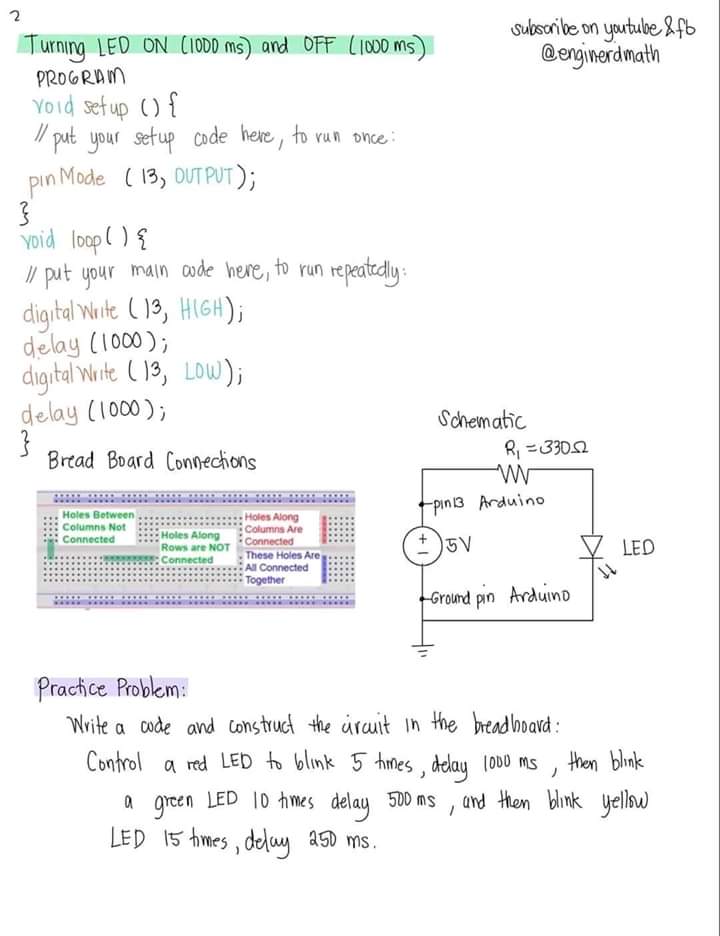 2
subscribe on youtube & fb
@enginerdmath
Turning LED ON (1000 ms) and OFF (1000 ms)
PROGRAM
void setup () {
// put your setup code here, to run once:
pinMode (13, OUTPUT);
}
void loop() {
// put your main code here, to run repeatedly:
digitalWrite (13, HIGH);
delay (1000);
digitalWrite (13, LOW);
delay (1000);
}
Bread Board Connections
Holes Between
Columns Not
Connected
Holes Along
Rows are NOT
Connected
Holes Along
Columns Are
Connected
These Holes Are
All Connected
Together
Schematic
R₁ = 330Ω
pin13 Arduino
+
−
5V
LED
Ground pin Arduino
Practice Problem:
Write a code and construct the circuit in the breadboard:
Control a red LED to blink 5 times, delay 1000 ms, then blink
a green LED 10 times delay 500 ms, and then blink yellow
LED 15 times, delay 250 ms.